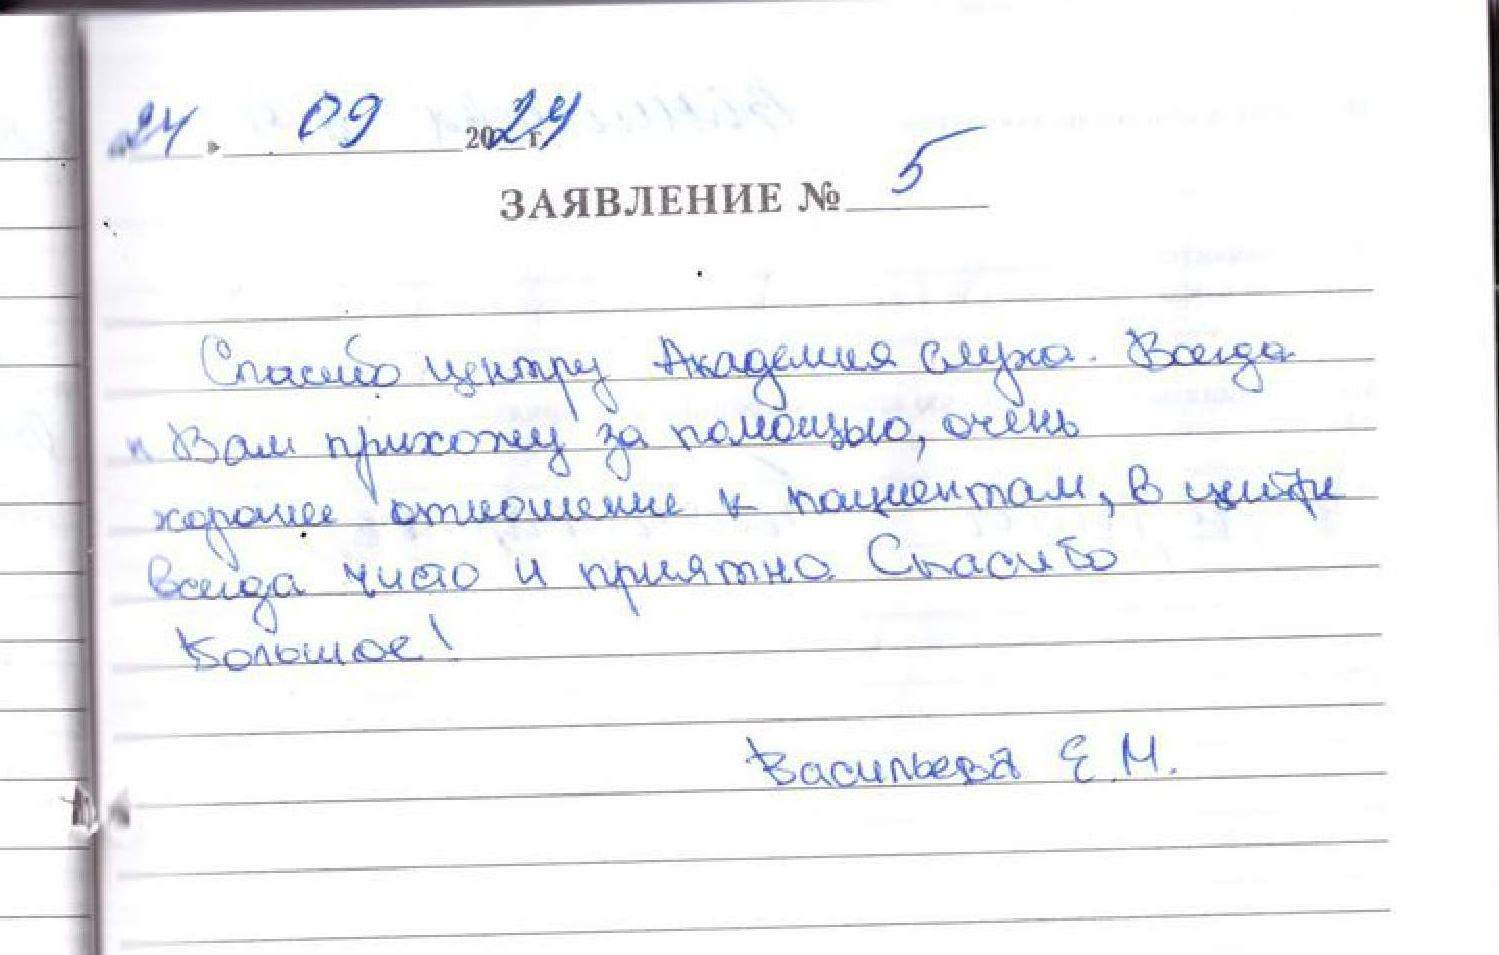 «24» 09 2024 г.
ЗАЯВЛЕНИЕ № 5
Спасибо центру Академия слуха. Всегда
к Вам прихожу за помощью, очень
хорошее отношение к пациентам, в центре
всегда чисто и приятно. Спасибо
большое!
Васильева Е.М.